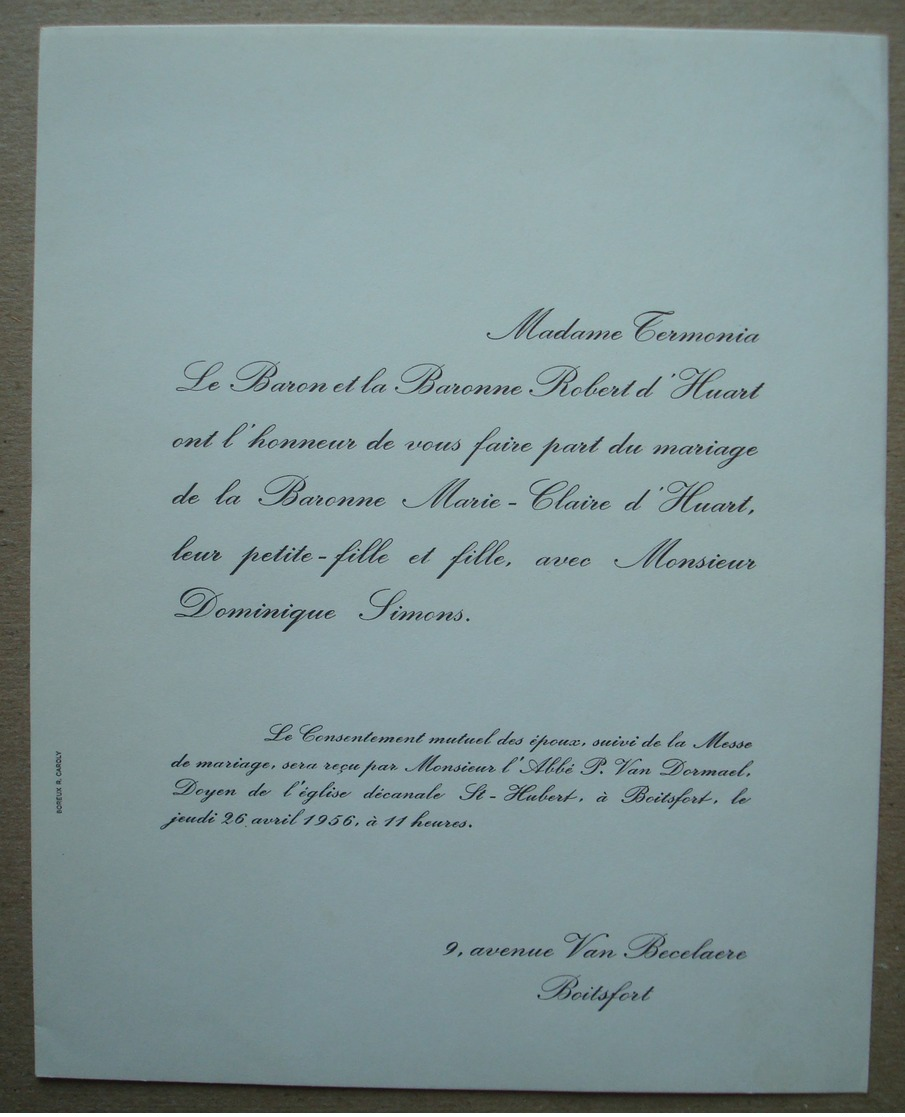 Madame Termonia
Le Baron et la Baronne Robert d'Huart
ont l'honneur de vous faire part du mariage
de la Baronne Marie-Claire d'Huart,
leur petite-fille et fille, avec Monsieur
Dominique Simons.
Le Consentement mutuel des époux, suivi de la Messe
de mariage, sera reçu par Monsieur l'Abbé P. Van Dormael,
Doyen de l'église décanale St-Hubert, à Boitsfort, le
jeudi 26 avril 1956, à 11 heures.
BOREUX R. CAROLY
9, avenue Van Becelaere
Boitsfort